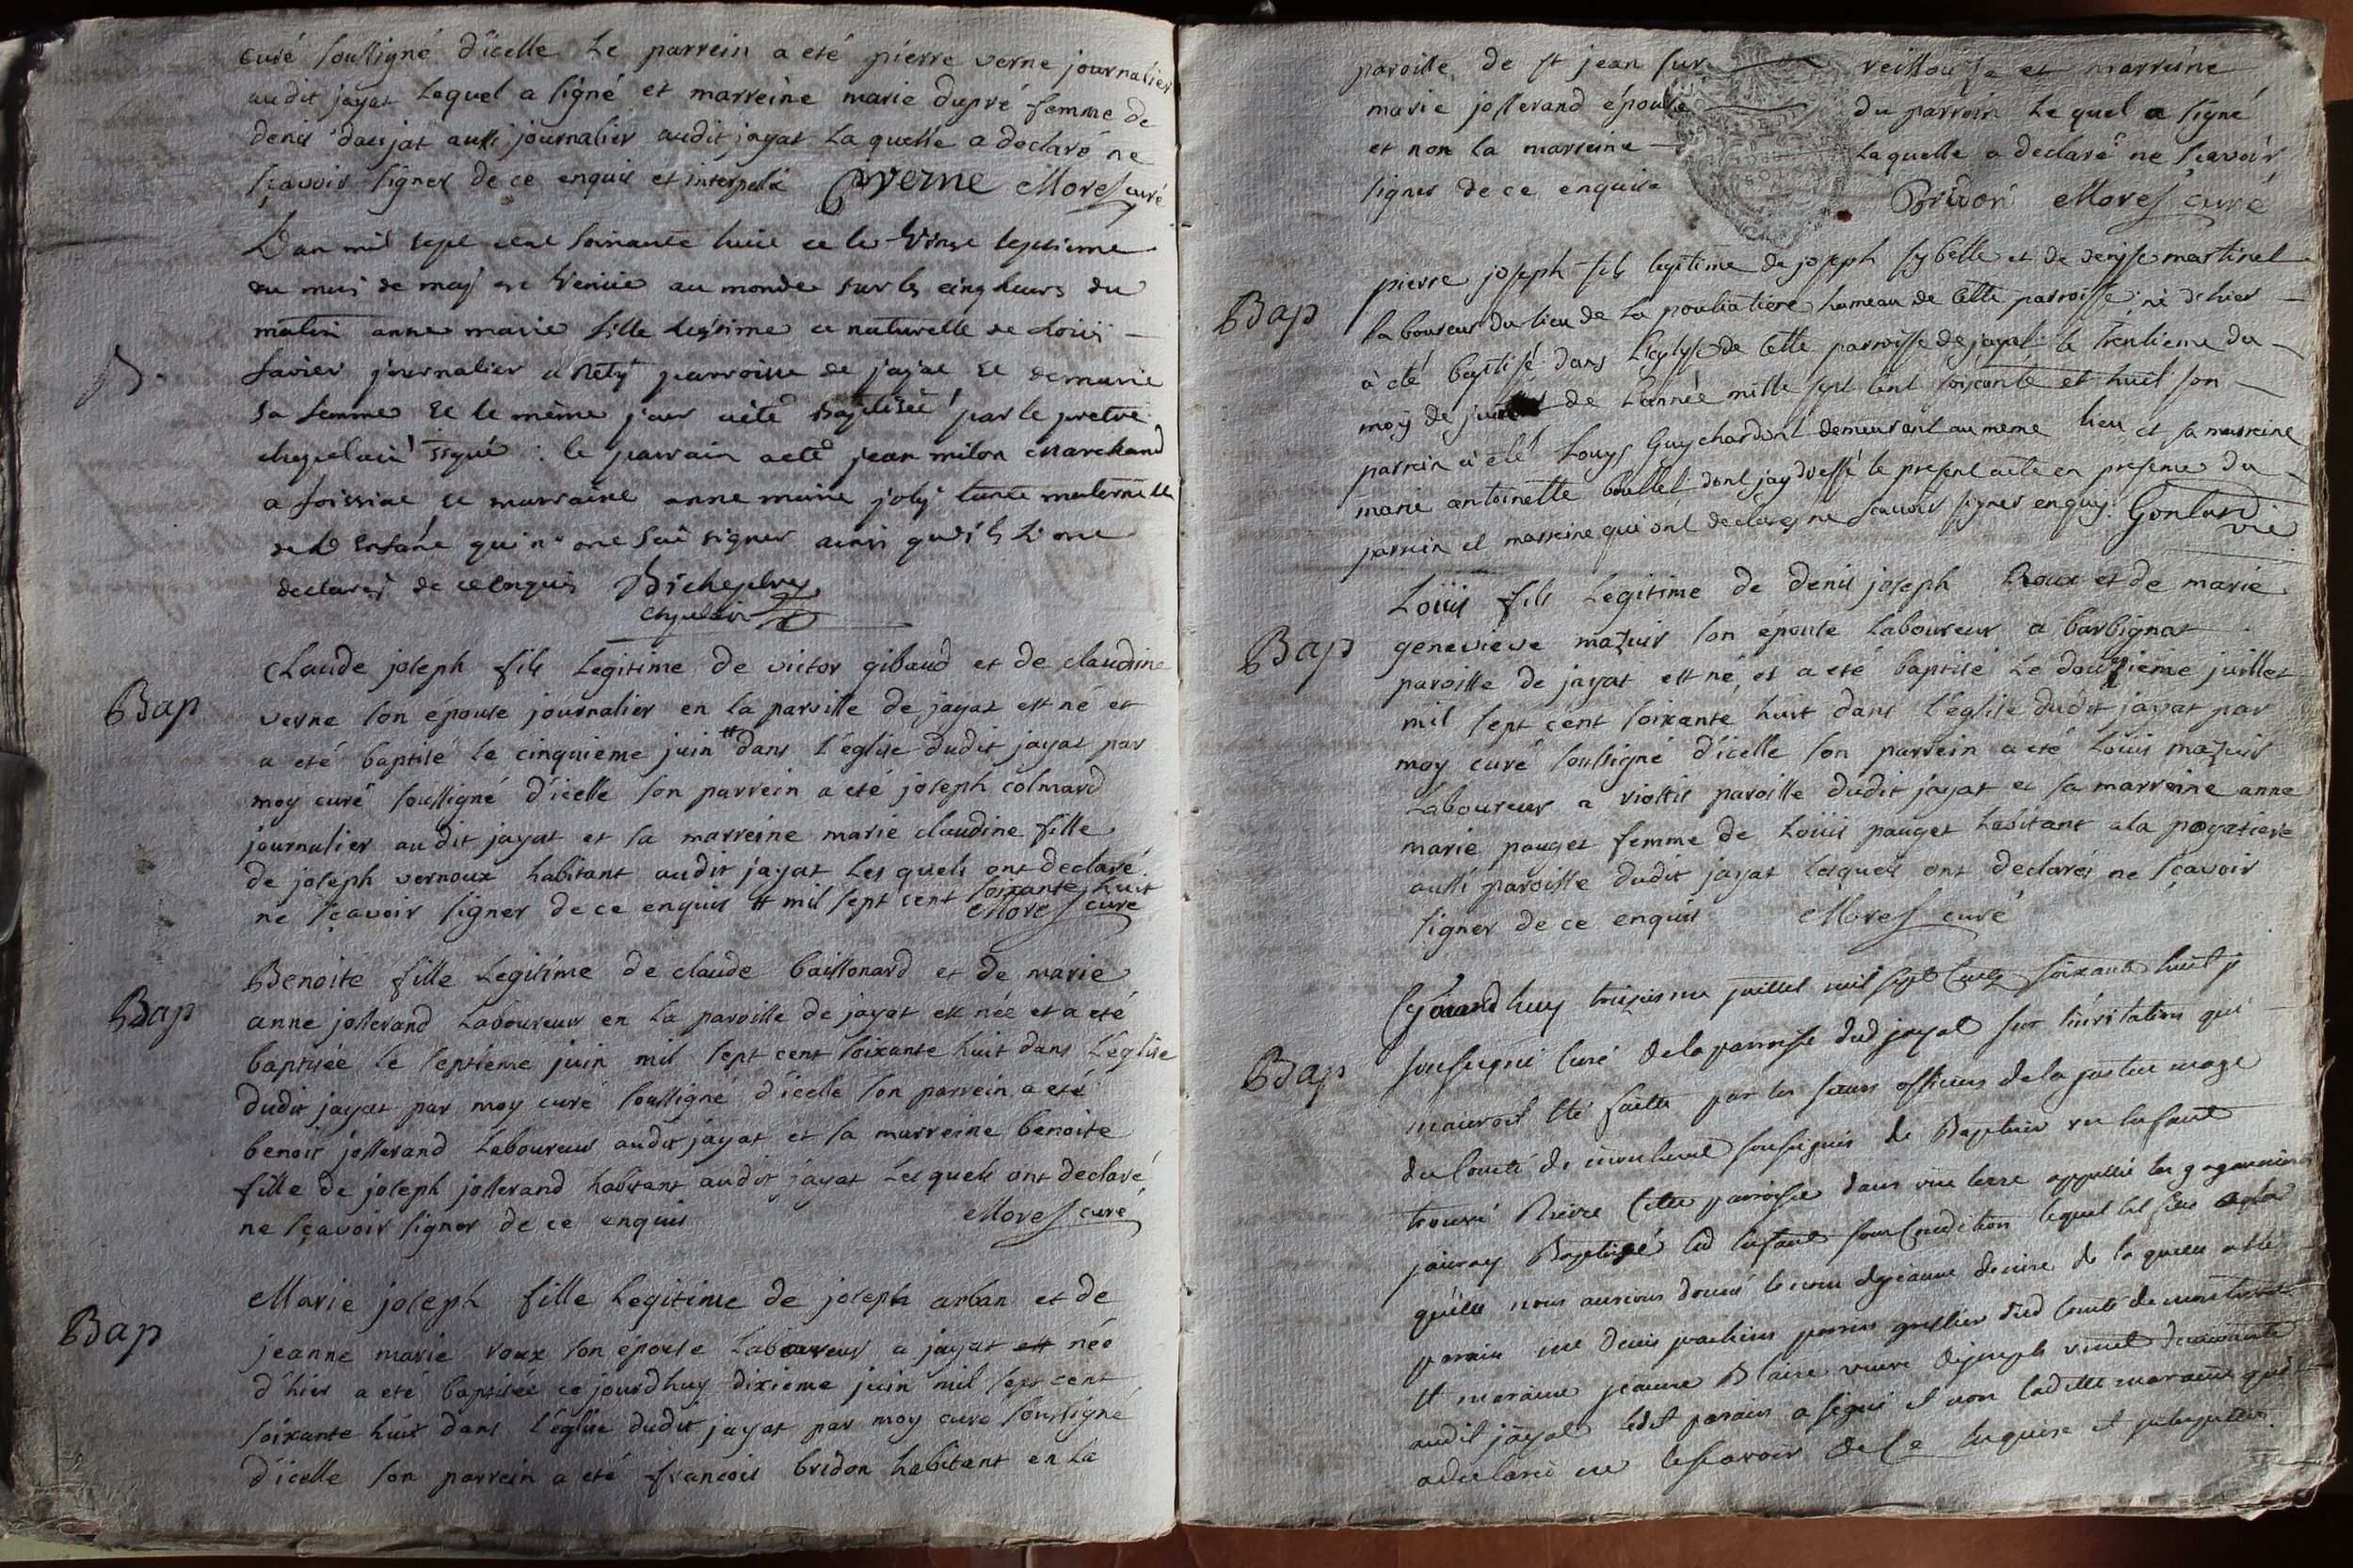 curé soussigné d'icelle Le parrein a eté pierre verne journalier
audit jayat Lequel a signé et marreine marie dupré femme de
denis daujat aussi journalier audit jayat Laquelle a declaré ne
sçavoir signer de ce enquis et interpelé Pverne Morel curé
L'an mil sept cent soixante huit et le Vingt septieme
du mois de may est Venüe au monde sur les cinq heures du
matin anne marie fille legitime et naturelle de Loüis
B. favier journalier a parroisse de jayat et de marie
sa femme et le même jour a été Baptisée par le pretre
chapelain signé : le parrain a eté jean milon Marchand
a foissiat et marraine anne marie joly tante maternelle
de L'Enfant qui n'ont sçu signer ainsi qu'ils L'ont
declarés de ce Enquis
chapelain
Claude joseph fils Legitime de victor gibaud et de claudine
Bap verne son épouse journalier en La paroisse de jayat est né et
a eté baptisé le cinquieme juin # dans l'église dudit jayat par
moy curé soussigné d'icelle son parrein a eté joseph colmard
journalier audit jayat et sa marreine marie claudine fille
de joseph vernoux habitant audit jayat Les quels ont declaré
ne sçavoir signer de ce enquis # mil sept cent soixante huit
Morel curé
Benoite fille Legitime de claude baissonard et de marie
Bap anne josserand Laboureur en La paroisse de jayat est née et a eté
baptisée le septieme juin mil sept cent soixante huit dans L'église
dudit jayat par moy curé soussigné d'icelle son parrein a eté
benoit josserand Laboureur audit jayat et sa marreine benoite
fille de joseph josserand habitant audit jayat Les quels ont declaré
ne sçavoir signer de ce enquis Morel curé
Marie joseph fille Legitime de joseph arban et de
Bap jeanne marie roux son épouse Laboureur a jayat est née
d'hier a eté baptisée ce jourdhuy dixieme juin mil sept cent
soixante huit dans l'église dudit jayat par moy curé soussigné
d'icelle son parrein a eté francois bridon habitant en La
paroisse de st jean sur reissouse et marreine
marie josserand épouse du parrein Le quel a signé
et non la marreine Laquelle a declaré ne sçavoir
signer de ce enquise Bridon Morel curé
pierre joseph fils legitime de joseph sybelle et de denyse martinet
Bap laboureur du lieu de la hameau de cette parroisse né d'hier
à eté baptisé dans l'eglyse de cette parroisse de jayat le trentieme du
moy de de l'année mille sept cent soixante et huit son
parrein à eté Louys Guychardon demeurant au meme lieu et sa marreine
marie antoinette dont jay dressé le present acte en presence du
parrein et marreine qui ont declarés ne scavoir signer enquys.
Loüis fils Legitime de denis joseph Roux et de marie
Bap genevieve mazuir son épouse Laboureur a barbignat
paroisse de jayat est né et a eté baptisé Le douzieme juillet
mil sept cent soixante huit dans l'église dudit jayat par
moy curé soussigné d'icelle son parrein a eté Loüis mazuir
Laboureur a paroisse dudit jayat et sa marreine anne
marie pauget femme de Loüis pauget habitant a la
aussi paroisse dudit jayat lesquels ont declarés ne sçavoir
signer de ce enquis Morel curé
Cejourd huy treizieme juillet mil sept cent soixante huit je
Bap soussigné curé de la parroisse dud jayat sur l'invitation qui
m'auroit été faitte par les sieurs officiers de la justice mage
du Comté de montrevel soussignés de Baptiser un enfant
trouvé Riere cette parroisse dans une terre appellée
j'auray Baptisé led enfant sous Condition lequel
qu'elle nous aurions donné le nom de jeanne de laquelle a été
parain me denis joachim greffier dud Comté de montrevel
et maraine jeanne Blaise veuve de joseph demeurante
audit jayat ledit parain a signé et non ladite maraine qui
a declaré ne le scavoir de ce Enquise et